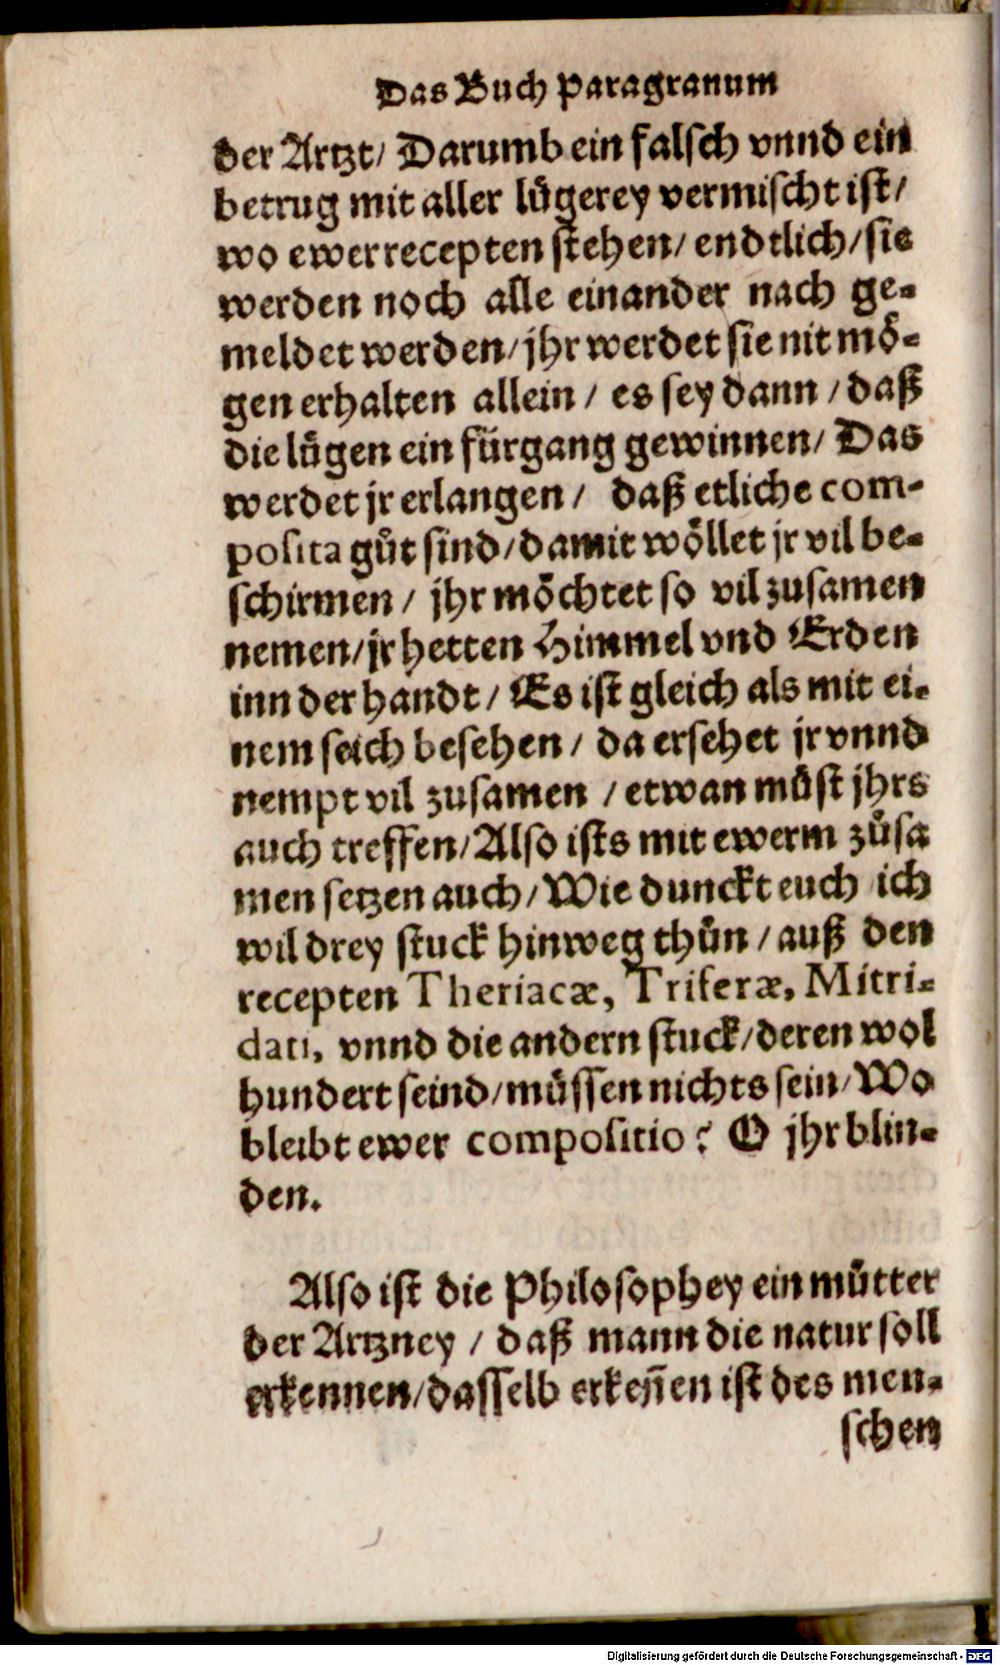 Das Buch Paragranum
der Artzt/ Darumb ein falsch vnnd ein
betrug mit aller lügerey vermischt ist/
wo ewer recepten stehen/ endtlich/ sie
werden noch alle einander nach ge-
meldet werden/ jhr werdet sie nit mö-
gen erhalten allein / es sey dann / daß
die lügen ein fürgang gewinnen/ Das
werdet jr erlangen / daß etliche com-
posita gůt sind/ damit wöllet jr vil be-
schirmen / jhr möchtet so vil zusamen
nemen/ jr hetten Himmel vnd Erden
inn der handt / Es ist gleich als mit ei-
nem seich besehen / da ersehet jr vnnd
nempt vil zusamen / etwan můst jhrs
auch treffen/ Also ists mit ewerm zůsa
men setzen auch/ Wie dunckt euch ich
wil drey stuck hinweg thůn / auß den
recepten Theriacæ, Triferæ, Mitri-
dati, vnnd die andern stuck/ deren wol
hundert seind/ müssen nichts sein/ Wo
bleibt ewer compositio? O jhr blin-
den.
Also ist die Philosophey ein můtter
der Artzney / daß mann die natur soll
erkennen/ dasselb erkeñen ist des men-
schen
Digitalisierung gefördert durch die Deutsche Forschungsgemeinschaft - DFG